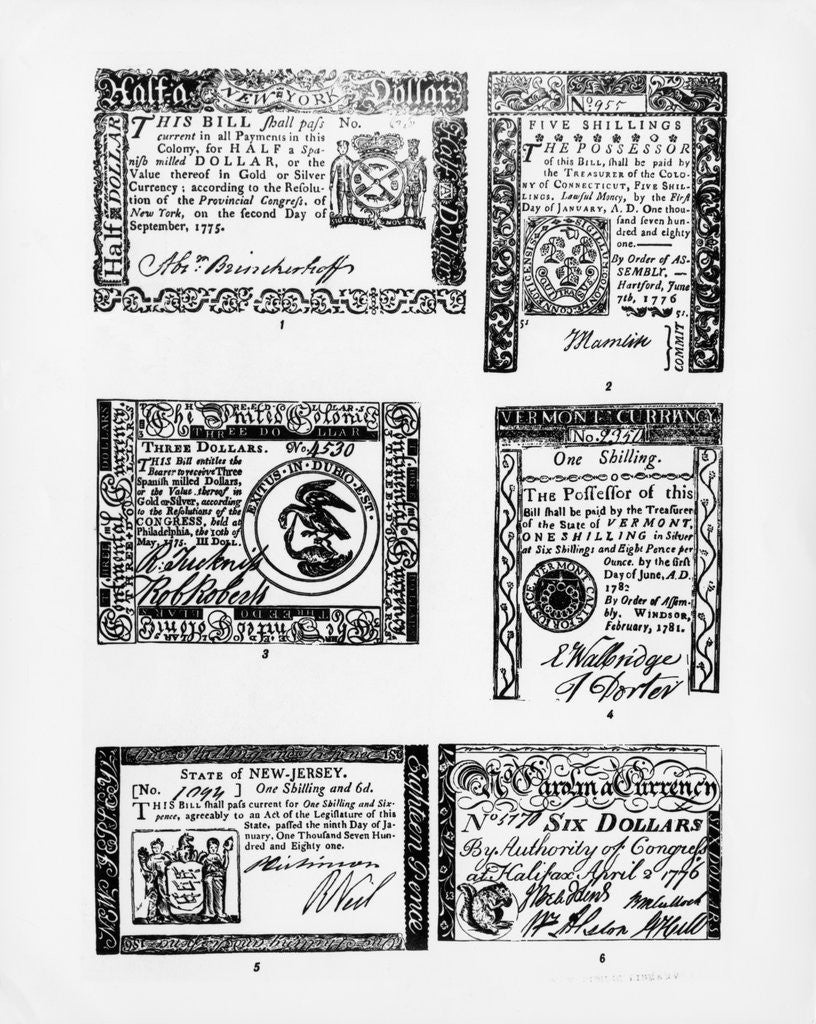 Half a NEW-YORK Dollar
Half DOLLAR
Half a Dollar
THIS BILL ſhall paſs
current in all Payments in this
Colony, for HALF a Spa-
niſh milled DOLLAR, or the
Value thereof in Gold or Silver
Currency; according to the Reſolu-
tion of the Provincial Congreſs, of
New York, on the second Day of
September, 1775.
No.
Abrm Brinckerhoff
1
No 955
FIVE SHILLINGS
THE POSSESSOR
of this BILL, ſhall be paid by
the TREASURER of the COLO-
NY of CONNECTICUT, FIVE SHIL-
LINGS. Lawful Money, by the Firſt
Day of JANUARY, A. D. One thou-
ſand ſeven hun-
dred and eighty
one.
By Order of AS-
SEMBLY,
Hartford, June
7th, 1776
5s. 5s.
COMMIT
2
The United Colonies
THREE DOLLAR
DOLLARS
Continental Currency
Continental Currency
THREE DOLLARS. No 4530
THIS Bill entitles the
Bearer to receive Three
Spaniſh milled Dollars,
or the Value thereof in
Gold or Silver, according
to the Reſolutions of the
CONGRESS, held at
Philadelphia, the 10th of
May, 1775. III DOLL.
EXITUS·IN·DUBIO·EST·
Rob Roberts
THREE DO LLAR
The United Colonies
3
VERMONTS CURRENCY
No. 2350
One Shilling.
THE Poſſeſſor of this
Bill ſhall be paid by the Treaſurer
of the State of VERMONT,
ONE SHILLING in Silver
at Six Shillings and Eight Pence per
Ounce. by the firſt
Day of June, A. D.
1782
By Order of Aſſem-
bly. WINDSOR,
February, 1781.
VERMONT CALLS FOR JUSTICE
E Walbridge
T Porter
4
STATE of NEW-JERSEY.
[No. 1094 ] One Shilling and 6d.
THIS BILL ſhall paſs current for One Shilling and Six-
pence, agreeably to an Act of the Legiſlature of this
State, paſſed the ninth Day of Ja-
nuary, One Thouſand Seven Hun-
dred and Eighty one.
N. JERSEY
Eighteen Pence
1S6
5
No Carolina Currency
No 1770 SIX DOLLARS
By Authority of Congreſs
at Halifax April 2 1776
SIX DOLLARS
6